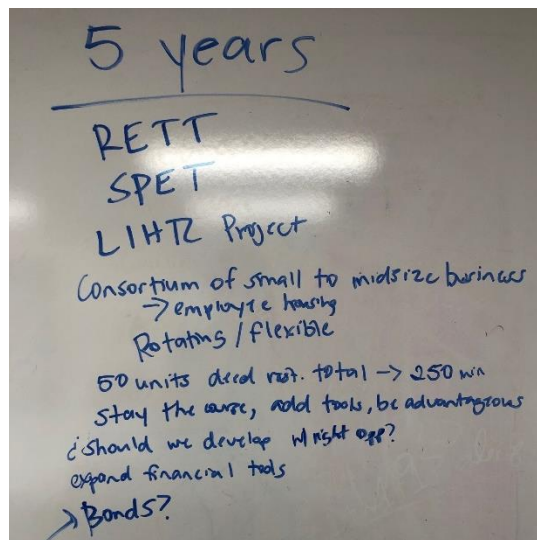 5 years
RETT
SPET
LIHTC Project
Consortium of small to midsize business
→ employee housing
Rotating / flexible
50 units deed rest. total → 250 min
stay the course, add tools, be advantageous
¿ should we develop w/ right opp?
expand financial tools
→ Bonds?